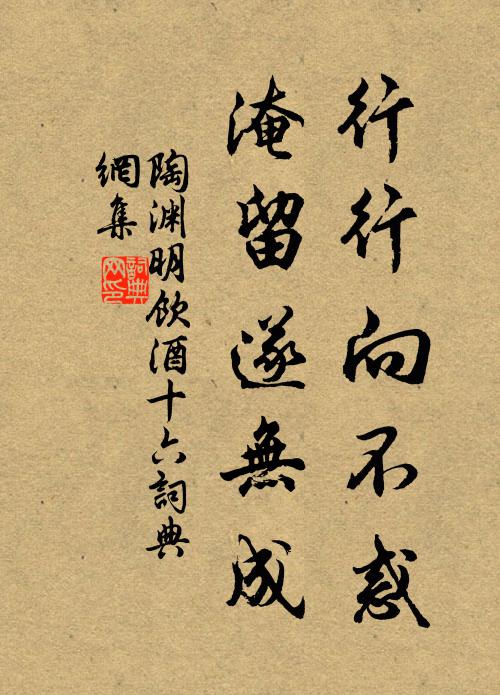 行行向不惑
淹留遂無成
陶渊明飲酒十六詞典
網集
詞典
网印